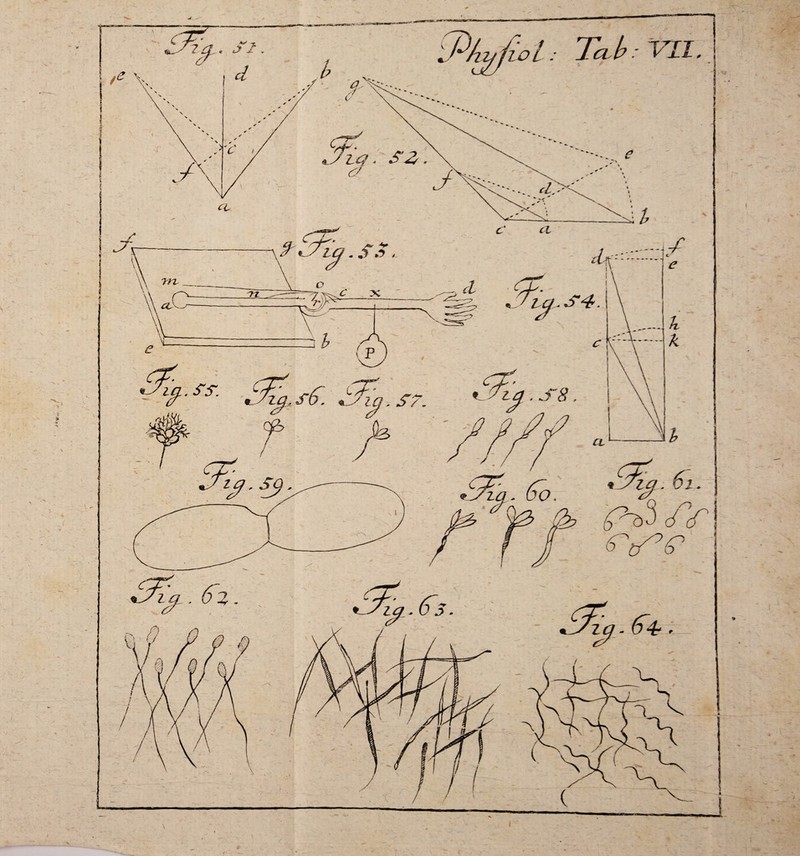 Fig. 51.
Phyſiol: Tab: VII.
e d b
g
c
f
a
Fig. 52.
e
f d
c a b
f g Fig. 53.
m o
n c x d
a r
e b
P
Fig. 54.
d f
e
h
c k
a b
Fig. 55. Fig. 56. Fig. 57. Fig. 58.
Fig. 59. Fig. 60. Fig. 61.
Fig. 62. Fig. 63. Fig. 64.